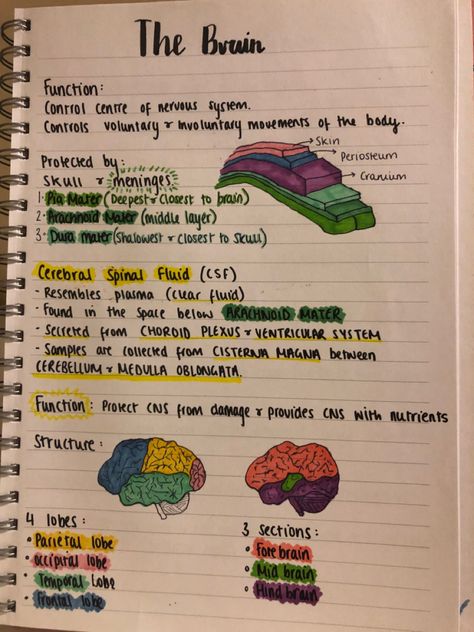 The Brain
Function:
Control centre of nervous system.
Controls voluntary & involuntary movements of the body.
Protected by:
Skull & meninges
1. Pia Mater (Deepest & closest to brain)
2. Arachnoid Mater (middle layer)
3. Dura mater (Shalowest & closest to skull)
Skin
Periosteum
Cranium
Cerebral Spinal Fluid (CSF)
- Resembles plasma (clear fluid)
- Found in the space below ARACHNOID MATER
- Secreted from CHOROID PLEXUS & VENTRICULAR SYSTEM
- Samples are collected from CISTERNA MAGNA between
CEREBELLUM & MEDULLA OBLONGATA.
Function: Protect CNS from damage & provides CNS with nutrients
Structure:
4 lobes:
• Parietal lobe
• occipital lobe
• Temporal Lobe
• Frontal lobe
3 sections:
• Forebrain
• Mid brain
• Hind brain